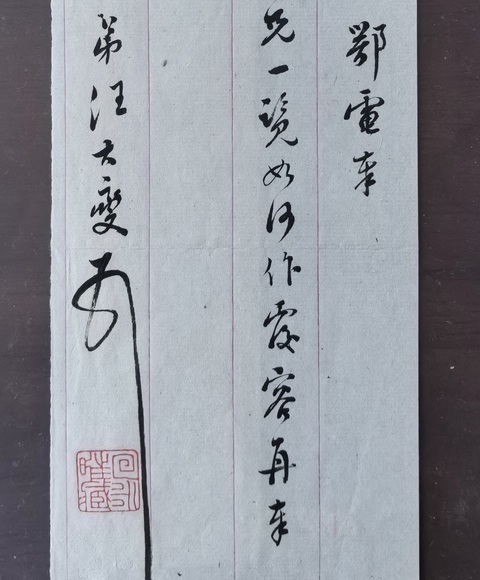 鄂電奉
兄一覽如何作覆容再奉
弟汪大燮